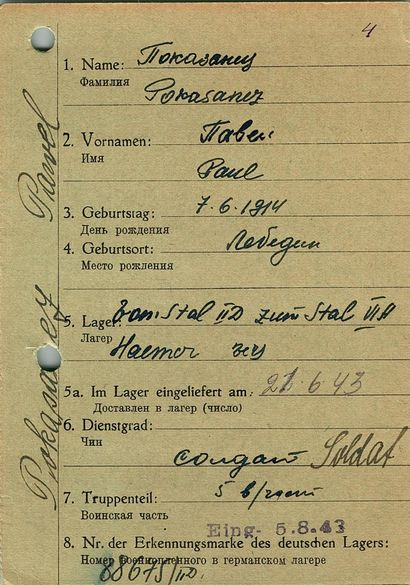 4
1. Name: Показанец
Фамилия
Pokasanez
2. Vornamen: Павел
Имя
Paul
3. Geburtstag: 7.6.1914
День рождения
4. Geburtsort: Лебедин
Место рождения
5. Lager: vom Stal II D zum Stal VI A
Лагер
5a. Im Lager eingeliefert am: 21.6.43
Доставлен в лагер (число)
6. Dienstgrad:
Чин
солдат Soldat
7. Truppenteil: 5 в/части
Воинская часть
Eing- 5.8.43
8. Nr. der Erkennungsmarke des deutschen Lagers:
Номер военнопленного в германском лагере
88675/IID.
Pokasanez Pawel